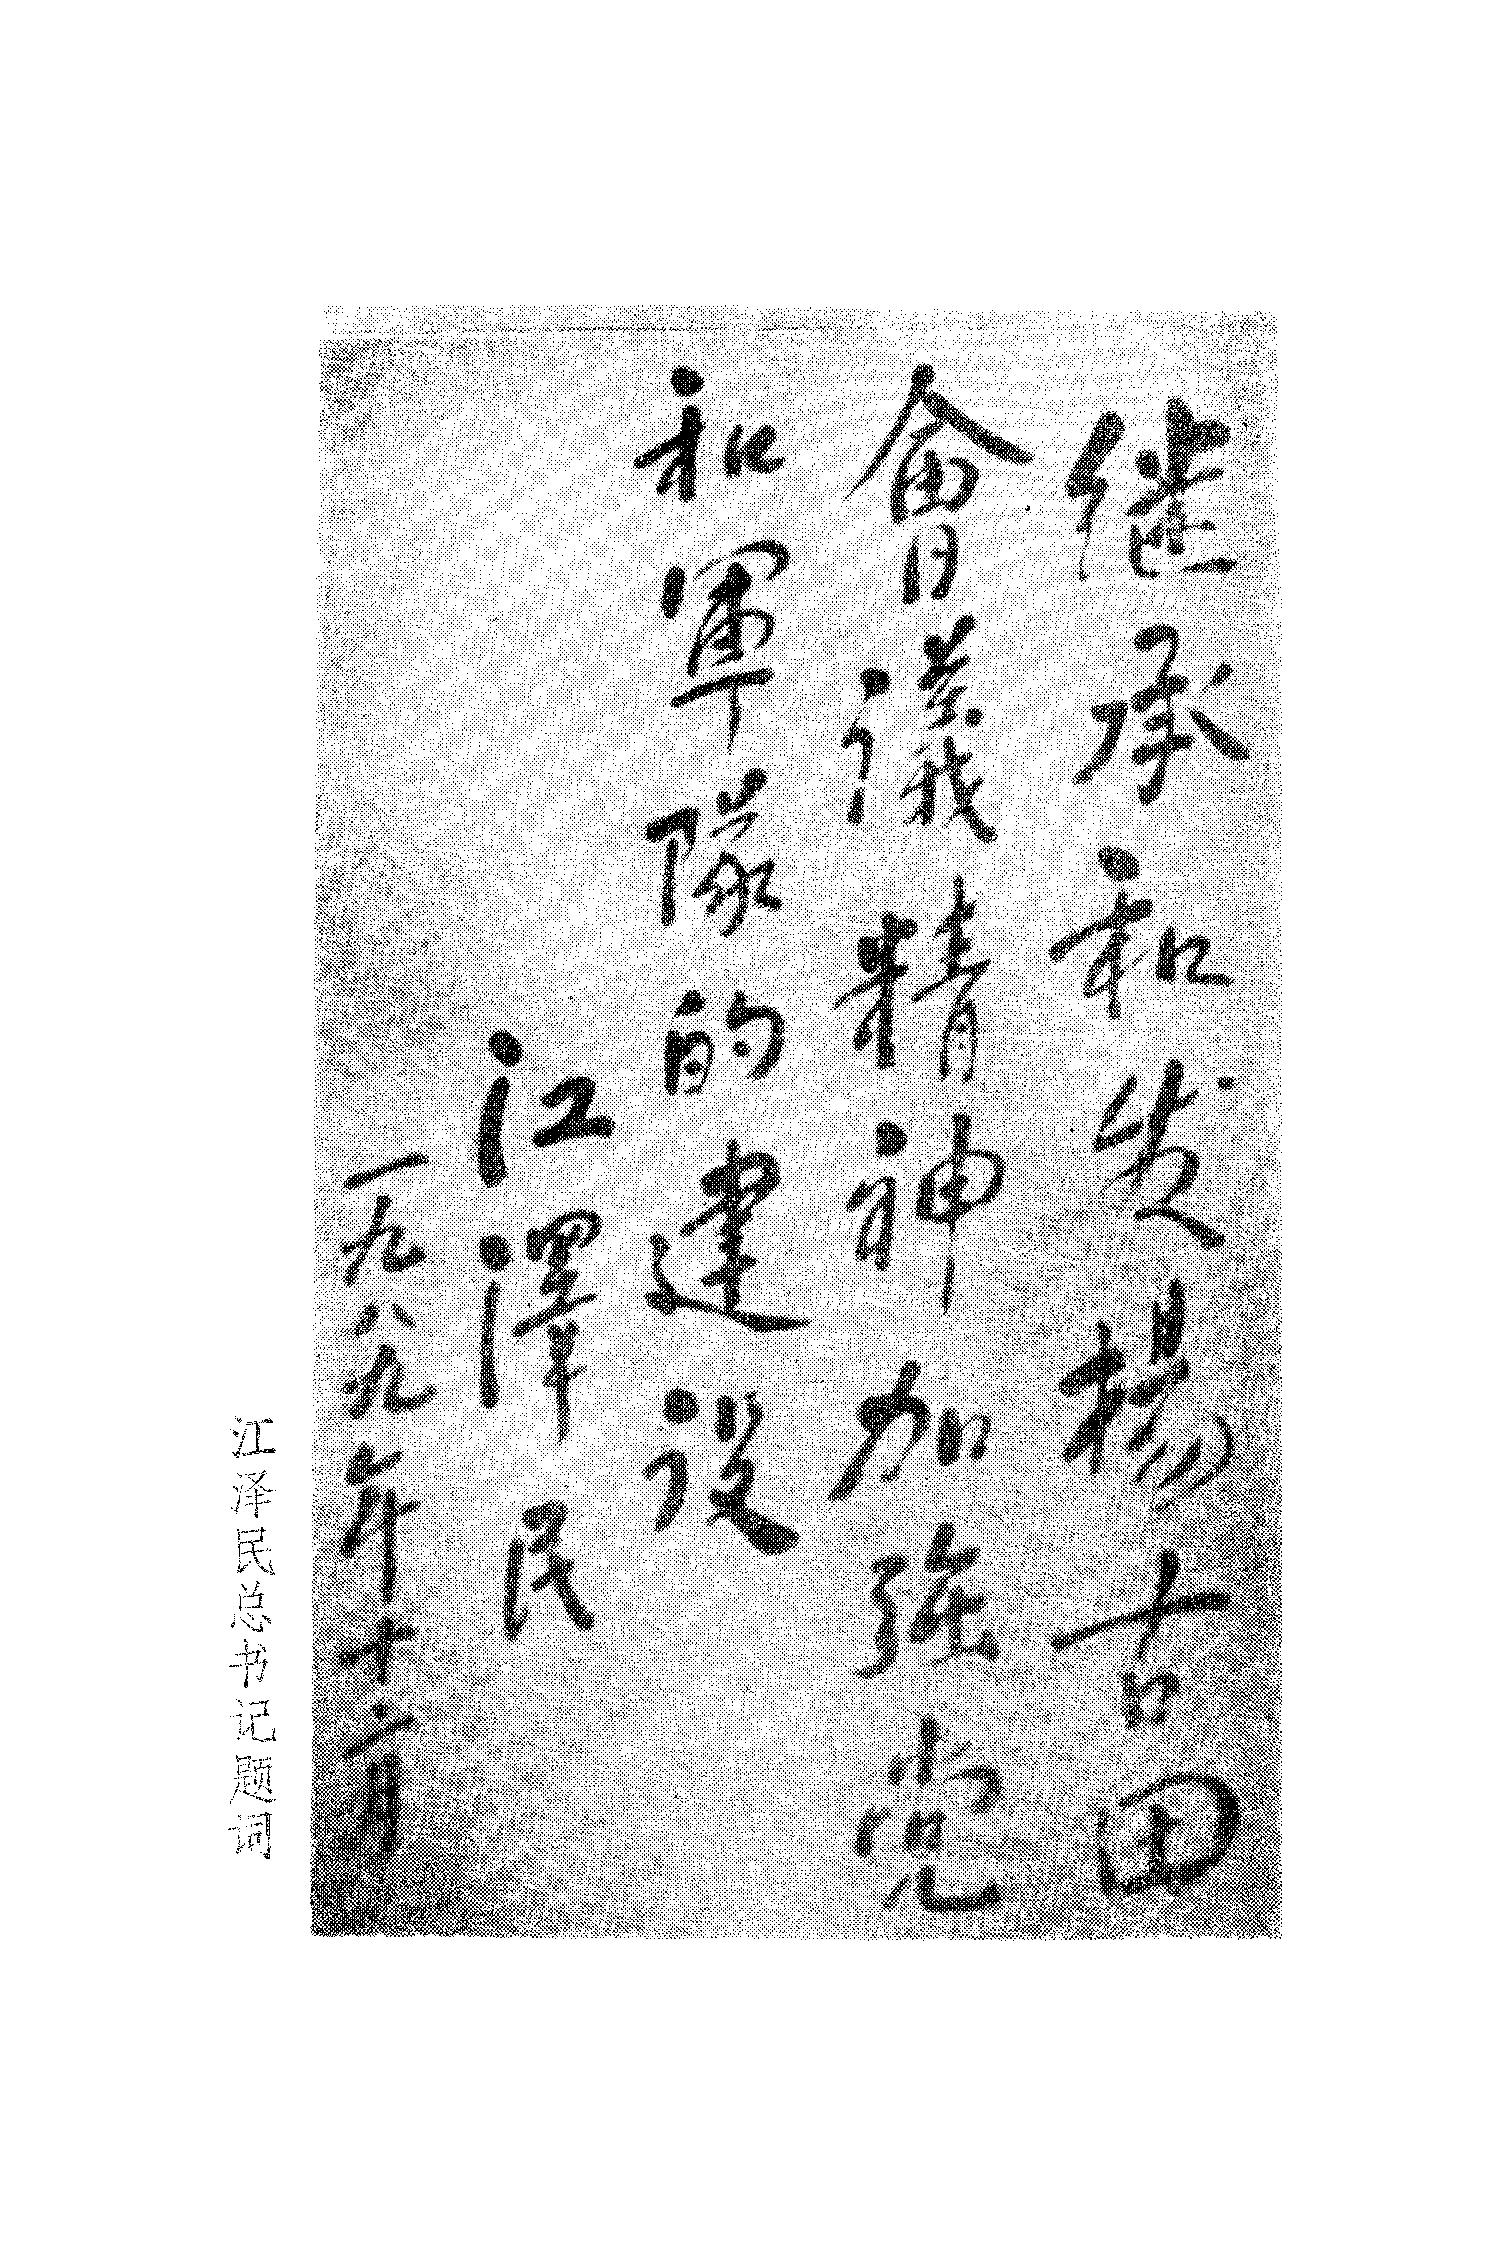 继承和发揚古田
會議精神加强党
和軍隊的建设
江澤民
一九八九年十二月
江泽民总书记题词